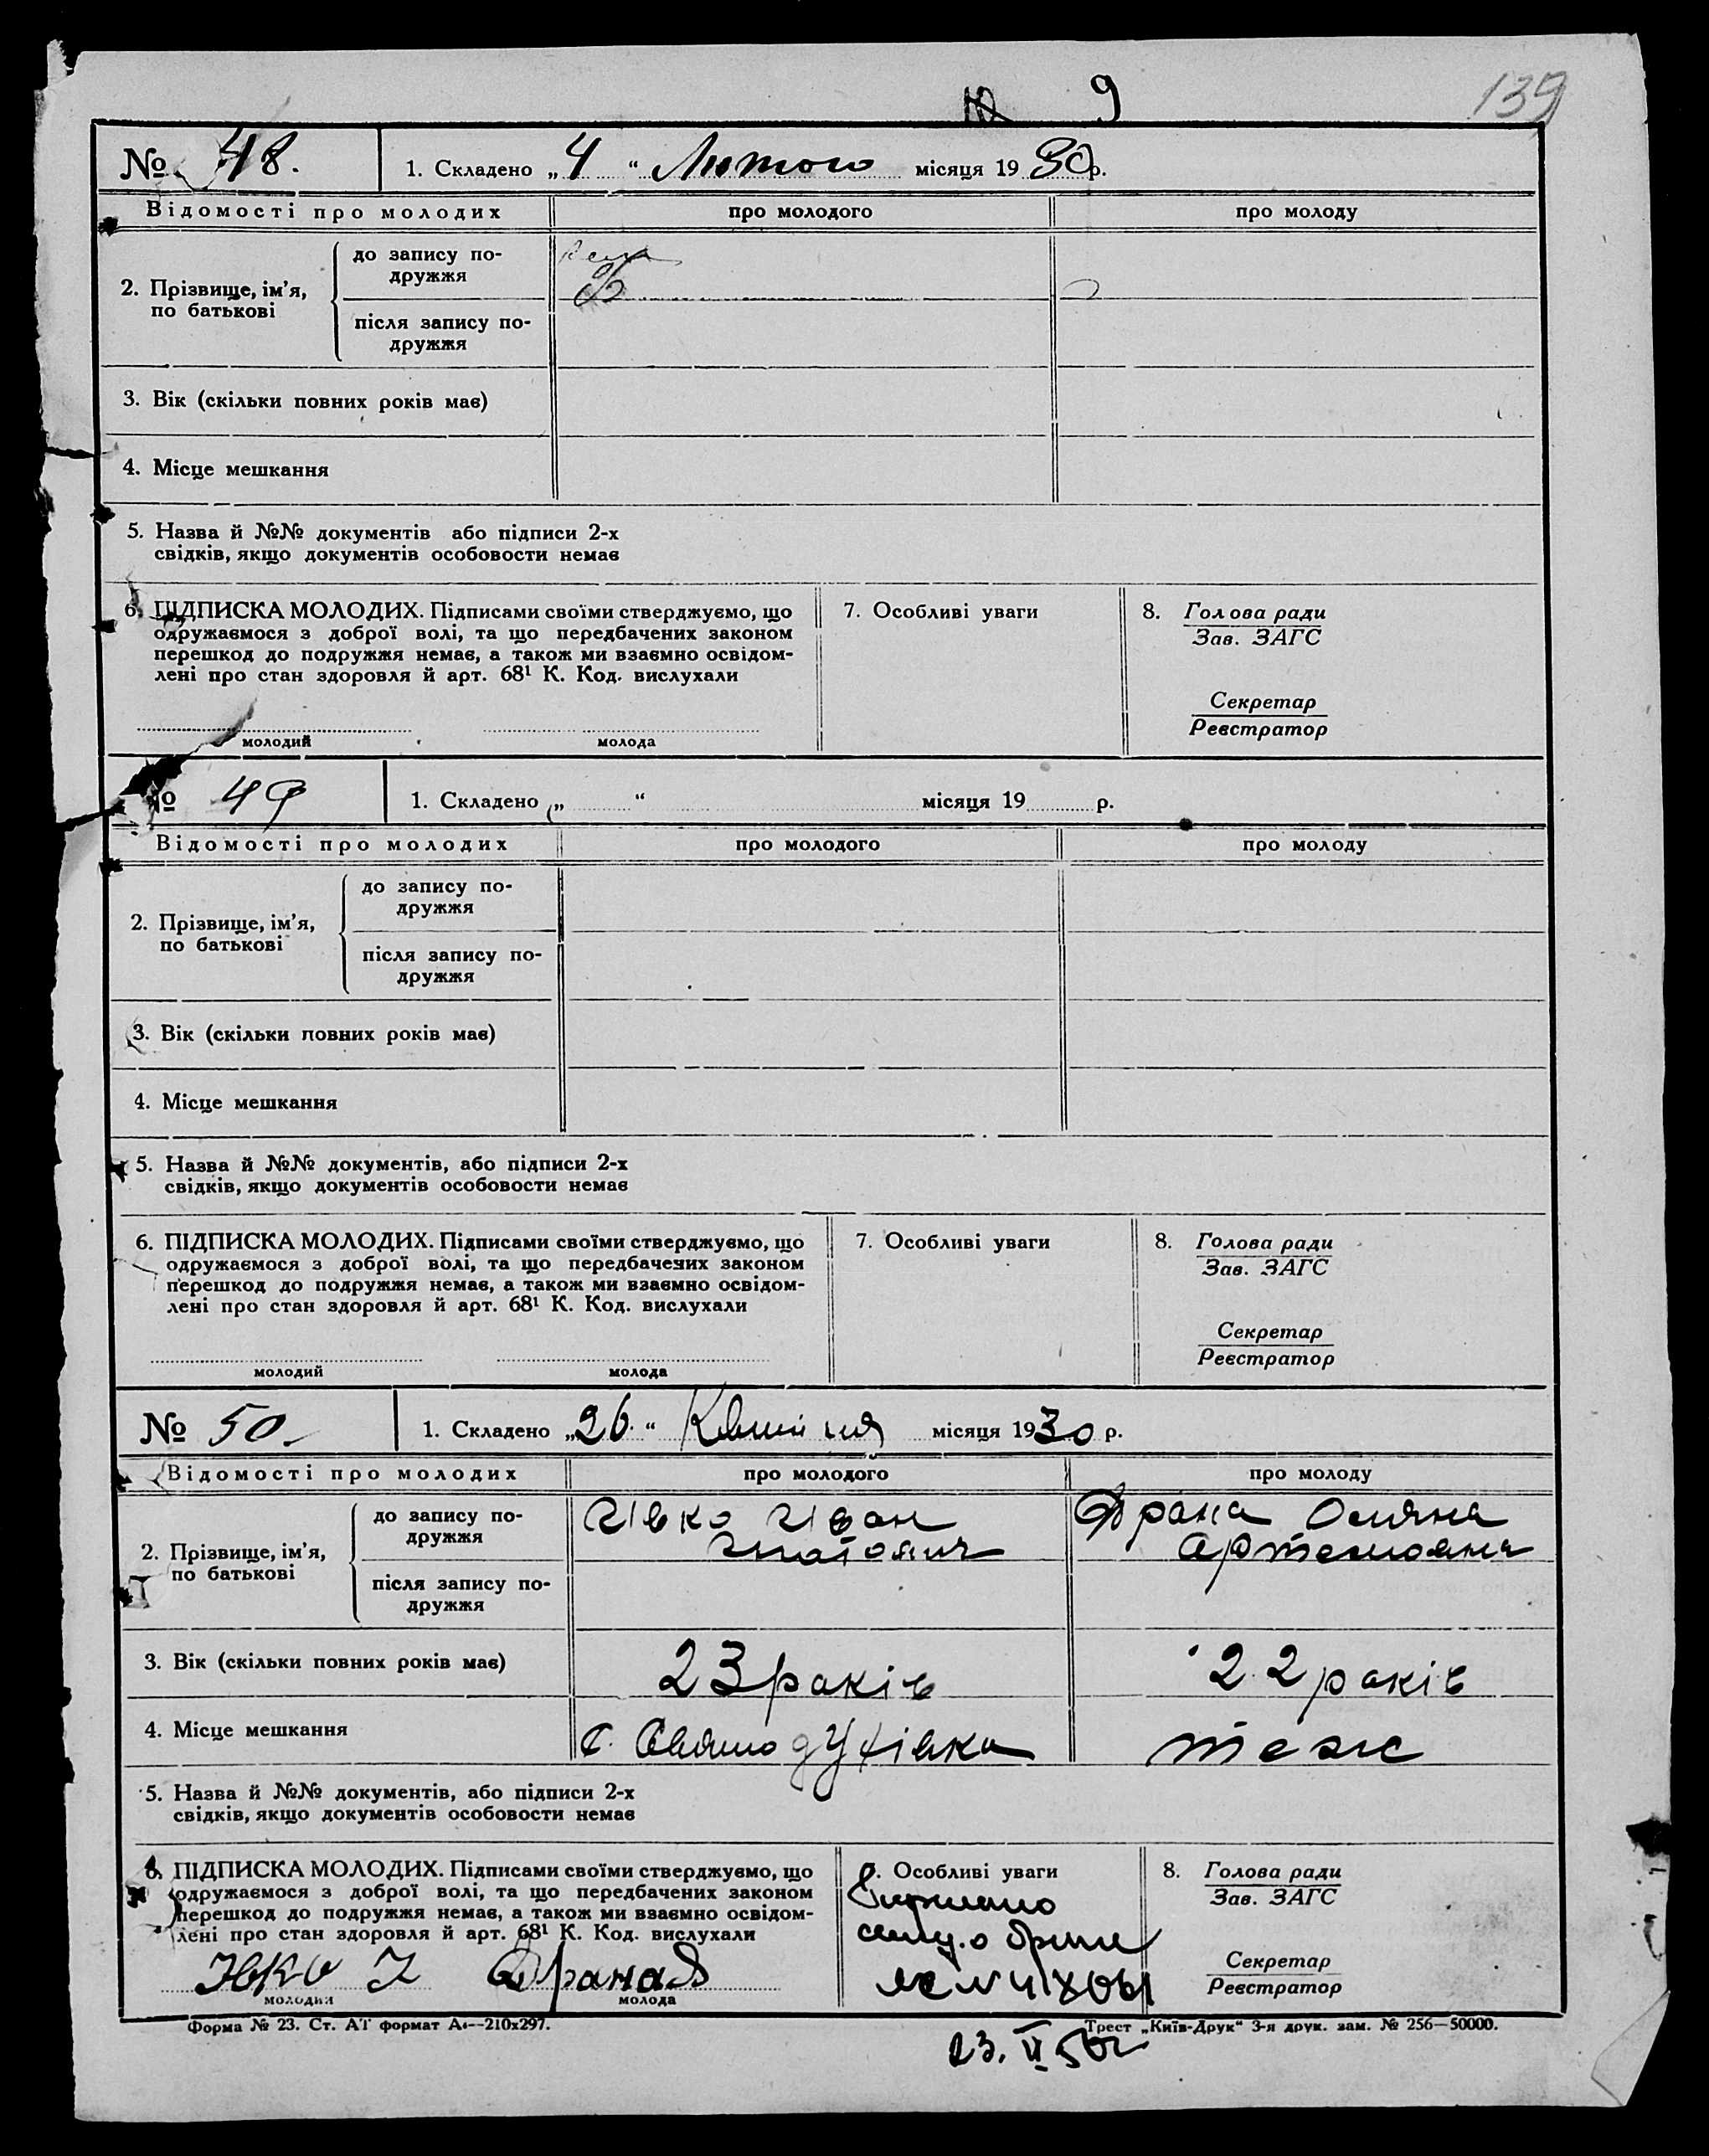 9
139
№ 48. 1. Складено „4“ Лютого місяця 1930 р.
Відомості про молодих про молодого про молоду
2. Прізвище, ім’я, по батькові
до запису подружжя
після запису подружжя
3. Вік (скільки повних років має)
4. Місце мешкання
5. Назва й №№ документів або підписи 2-х
свідків, якщо документів особовости немає
6. ПІДПИСКА МОЛОДИХ. Підписами своїми стверджуємо, що
одружаємося з доброї волі, та що передбачених законом
перешкод до подружжя немає, а також ми взаємно освідом-
лені про стан здоровля й арт. 68¹ К. Код. вислухали
молодий молода
7. Особливі уваги
8. Голова ради
Зав. ЗАГС
Секретар
Реєстратор
№ 49 1. Складено „ “ місяця 19 р.
Відомості про молодих про молодого про молоду
2. Прізвище, ім’я,
по батькові
до запису по-
дружжя
після запису по-
дружжя
3. Вік (скільки повних років має)
4. Місце мешкання
5. Назва й №№ документів, або підписи 2-х
свідків, якщо документів особовости немає
6. ПІДПИСКА МОЛОДИХ. Підписами своїми стверджуємо, що
одружаємося з доброї волі, та що передбачених законом
перешкод до подружжя немає, а також ми взаємно освідом-
лені про стан здоровля й арт. 68¹ К. Код. вислухали
молодий молода
7. Особливі уваги
8. Голова ради
Зав. ЗАГС
Секретар
Реєстратор
№ 50 1. Складено „26.“ Квитня місяця 1930 р.
Відомості про молодих про молодого про молоду
2. Прізвище, ім’я,
по батькові
до запису по-
дружжя
Івко Іван
Драна Оляна
Артемовна
після запису по-
дружжя
3. Вік (скільки повних років має) 23 років 22 років
4. Місце мешкання с. Святодухівка теж
5. Назва й №№ документів, або підписи 2-х
свідків, якщо документів особовости немає
6. ПІДПИСКА МОЛОДИХ. Підписами своїми стверджуємо, що
одружаємося з доброї волі, та що передбачених законом
перешкод до подружжя немає, а також ми взаємно освідом-
лені про стан здоровля й арт. 68¹ К. Код. вислухали
Івко І Драна
молодий молода
7. Особливі уваги
8. Голова ради
Зав. ЗАГС
Секретар
Реєстратор
Форма № 23. Ст. АТ формат А₄—210х297.
Трест „Київ-Друк“ 3-я друк. зам. № 256—50000.
23. VI